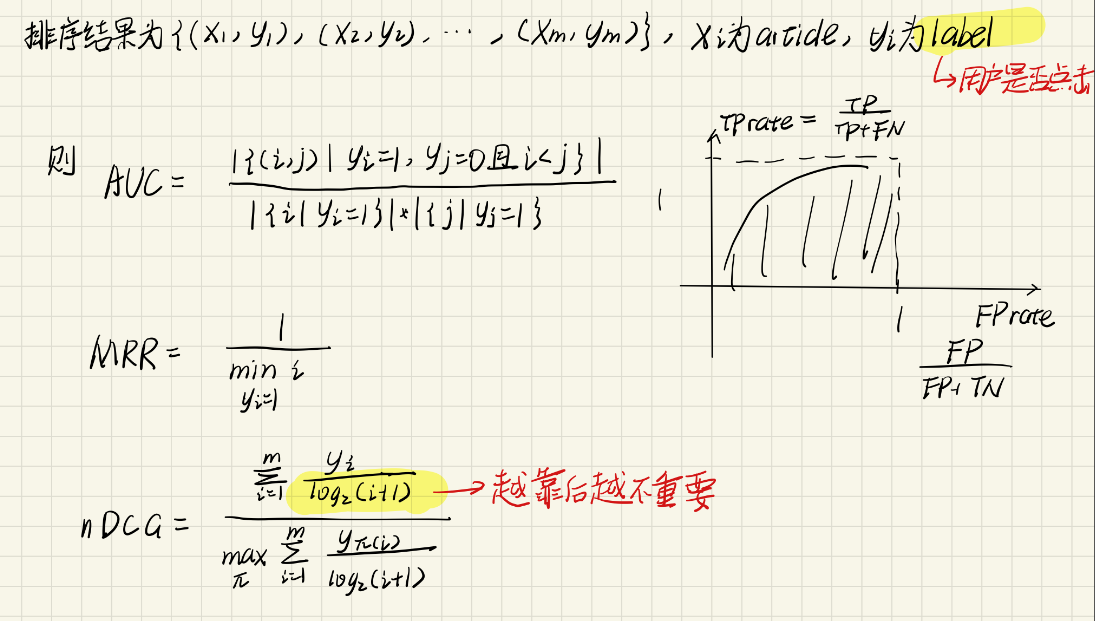 排序结果为{(x₁, y₁), (x₂, y₂), ⋯, (xₘ, yₘ)}, xᵢ为article, yᵢ为label
↳用户是否点击
则 AUC = |{(i,j) | yᵢ=1, yⱼ=0且i<j}| / |{i| yᵢ=1}|*|{j| yⱼ=1}
TPrate = TP / TP+FN
1
1
FPrate
FP / FP+TN
MRR = 1 / min i yᵢ=1
nDCG = ∑ᵢ₌₁ᵐ yᵢ / log₂(i+1) / max π ∑ᵢ₌₁ᵐ y_π(i) / log₂(i+1)
→越靠后越不重要